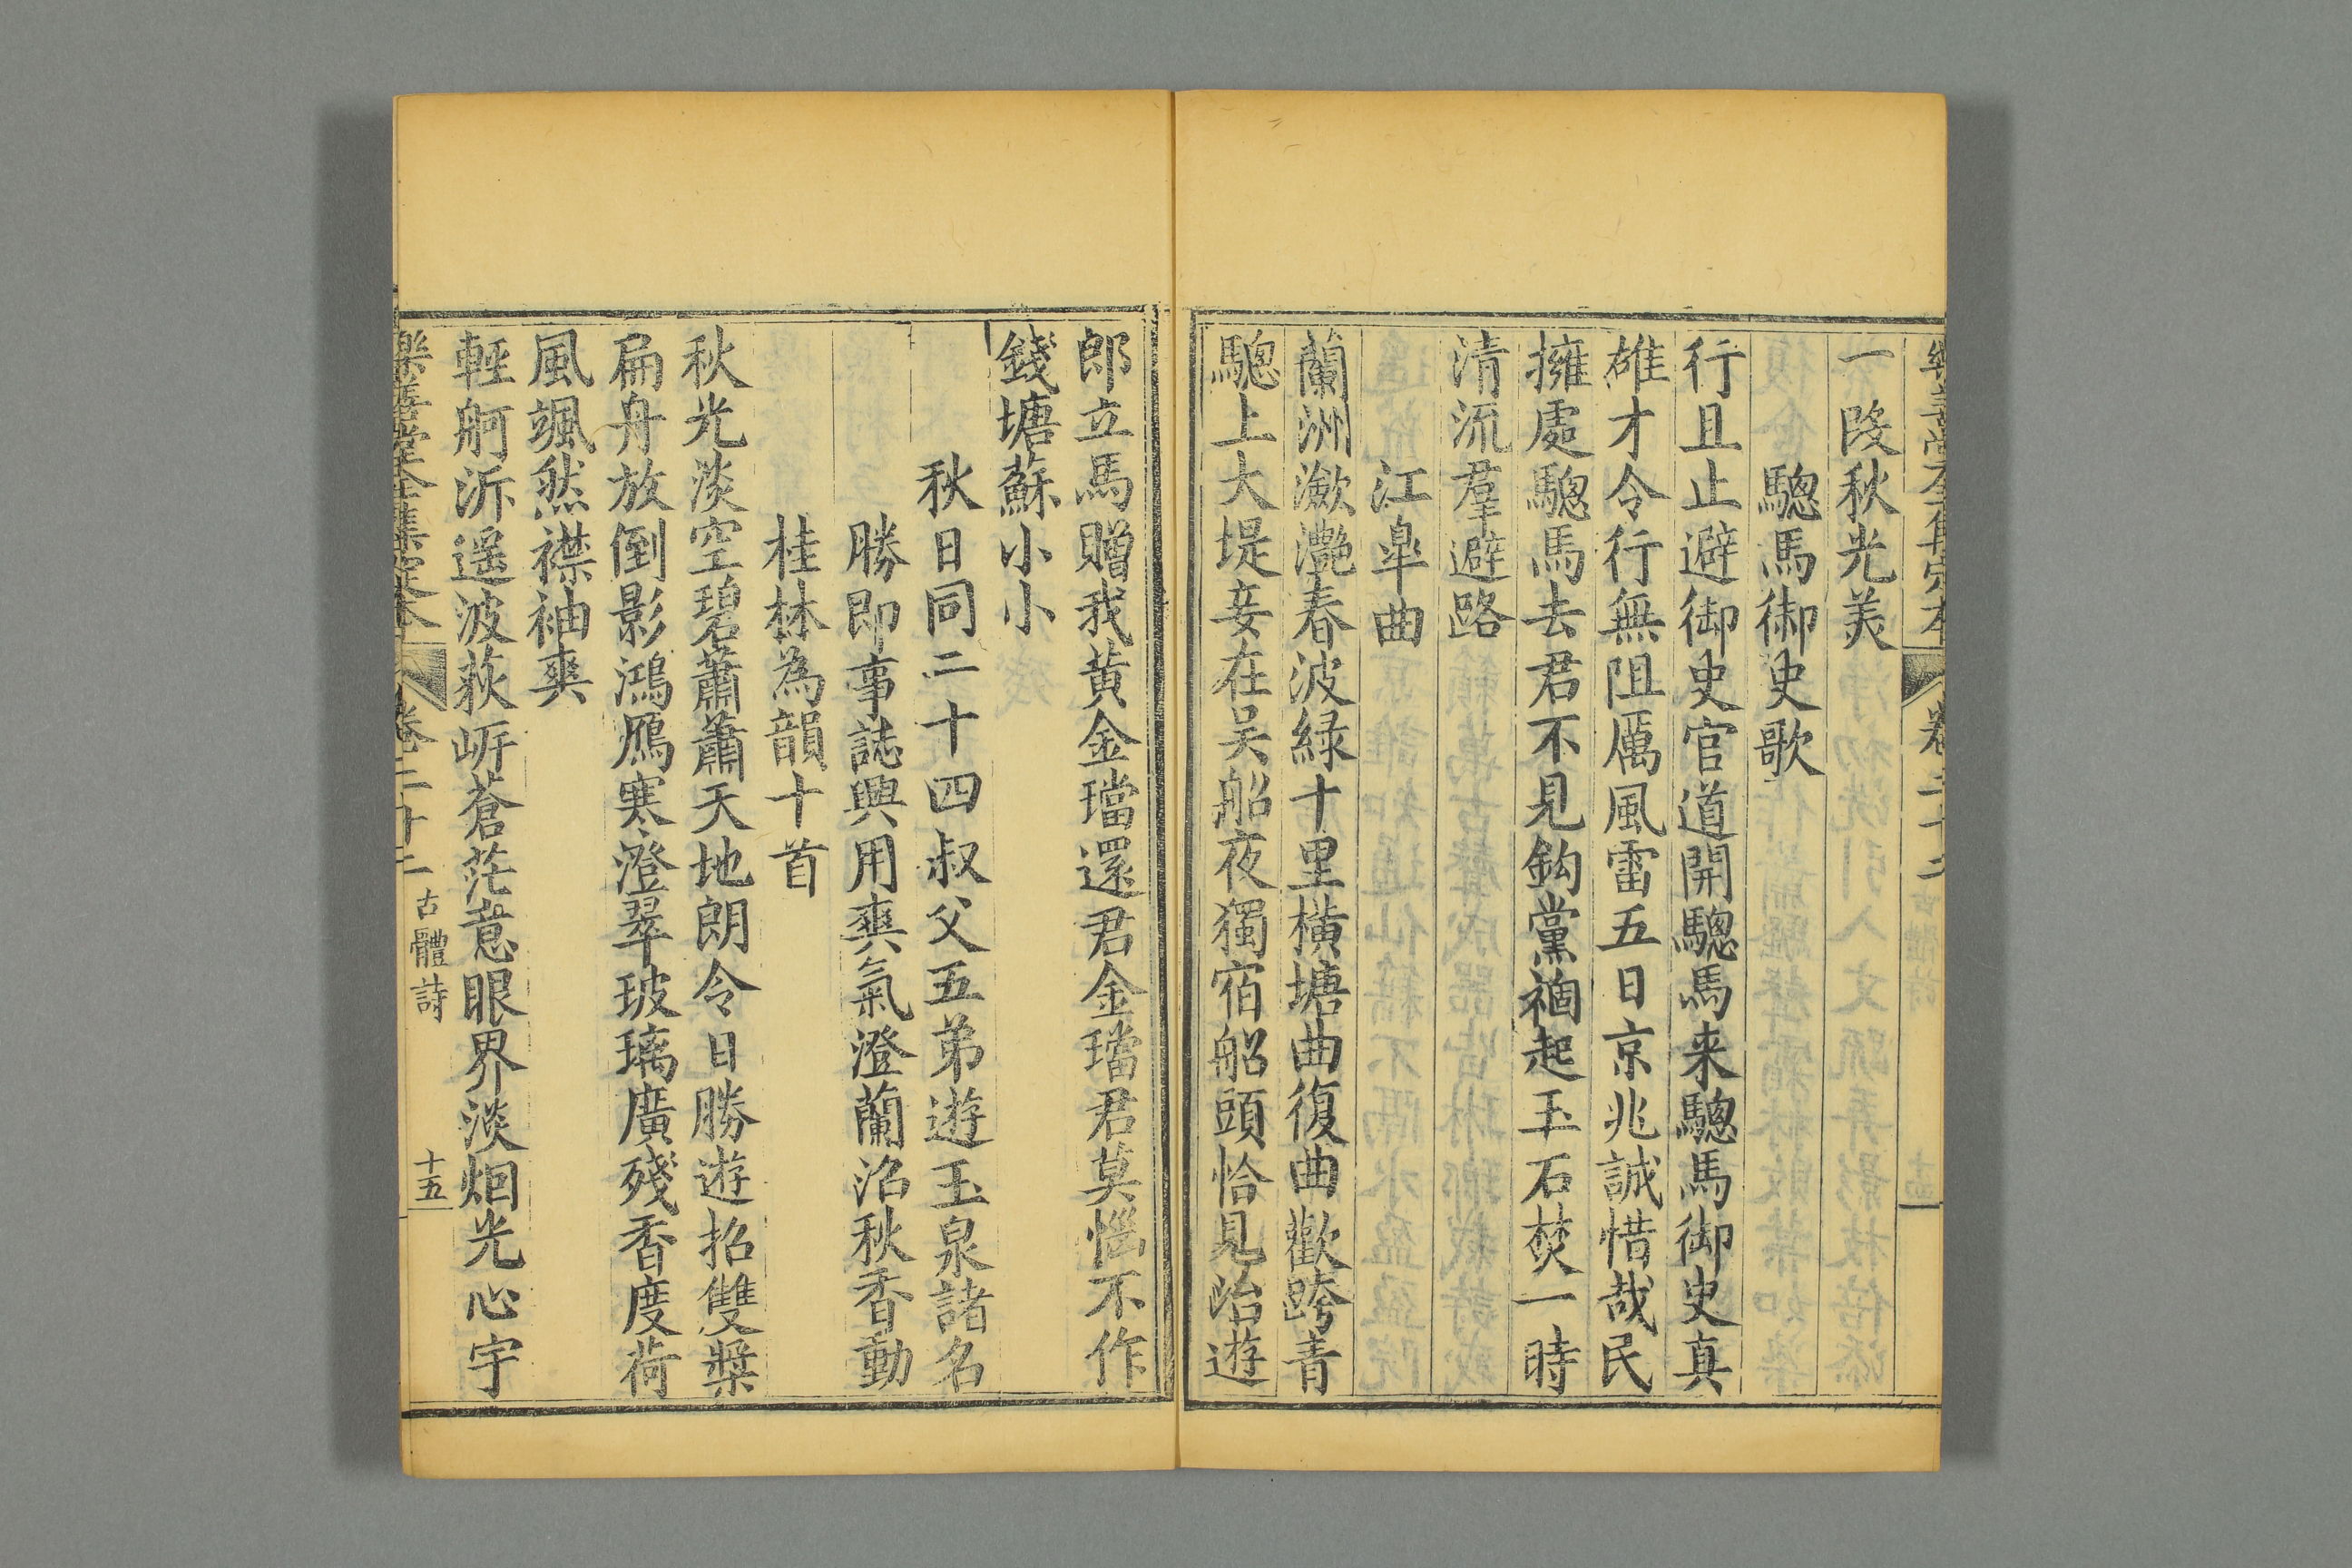 一段秋光美
驄馬御史歌
行且止避御史官道開驄馬来驄馬御史真
雄才令行無阻厲風雷五日京兆誠惜哉民
擁處驄馬去君不見鈎黨禍起玉石焚一時
清流羣避路
江臯曲
蘭洲瀲灧春波緑十里橫塘曲復曲歡跨青
驄上大堤妾在吴船夜獨宿船頭恰見冶遊
郎立馬贈我黄金璫還君金璫君莫惱不作
錢塘蘇小小
秋日同二十四叔父五弟遊玉泉諸名
勝即事誌興用爽氣澄蘭沼秋香動
桂林為韻十首
秋光淡空碧蕭蕭天地朗今日勝遊招雙槳
扁舟放倒影鴻鴈寒澄翠玻璃廣殘香度荷
風颯然襟袖爽
輕舸泝遥波荻岍蒼茫意眼界淡烟光心宇
樂善堂全集定本
卷二十二
古體詩
十五